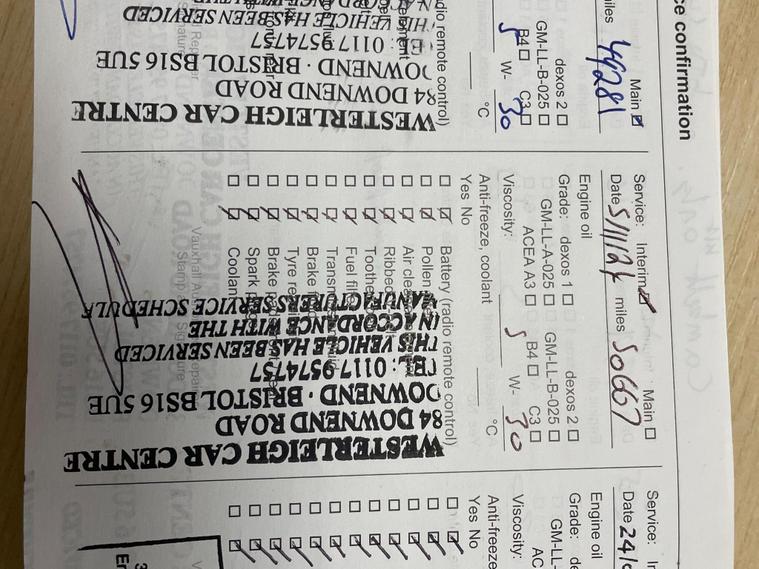 ce confirmation
Main
miles 44281
dexos 2
GM-LL-B-025
B4 C3
5 W- 30
°C
adio remote control)
WESTERLEIGH CAR CENTRE
84 DOWNEND ROAD
DOWNEND · BRISTOL BS16 5UE
TEL: 0117 9574757
THIS VEHICLE HAS BEEN SERVICED
Service: Interim Main
Date 5/11/24 miles 50667
Engine oil
Grade: dexos 1 dexos 2
GM-LL-A-025 GM-LL-B-025
ACEA A3 B4 C3
Viscosity: 5 W- 30 °C
Anti-freeze, coolant
Yes No
Battery (radio remote control)
Pollen
Air cle
Ribbed
Toothe
Fuel filt
Trans
Brake
Tyre re
Brake
Spark
Coolan
WESTERLEIGH CAR CENTRE
84 DOWNEND ROAD
DOWNEND · BRISTOL BS16 5UE
TEL: 0117 9574757
THIS VEHICLE HAS BEEN SERVICED
IN ACCORDANCE WITH THE
MANUFACTURERS SERVICE SCHEDULE
Vauxhall A
Service: In
Date 24/
Engine oil
Grade: de
GM-LL-
AC
Viscosity:
Anti-freeze
Yes No